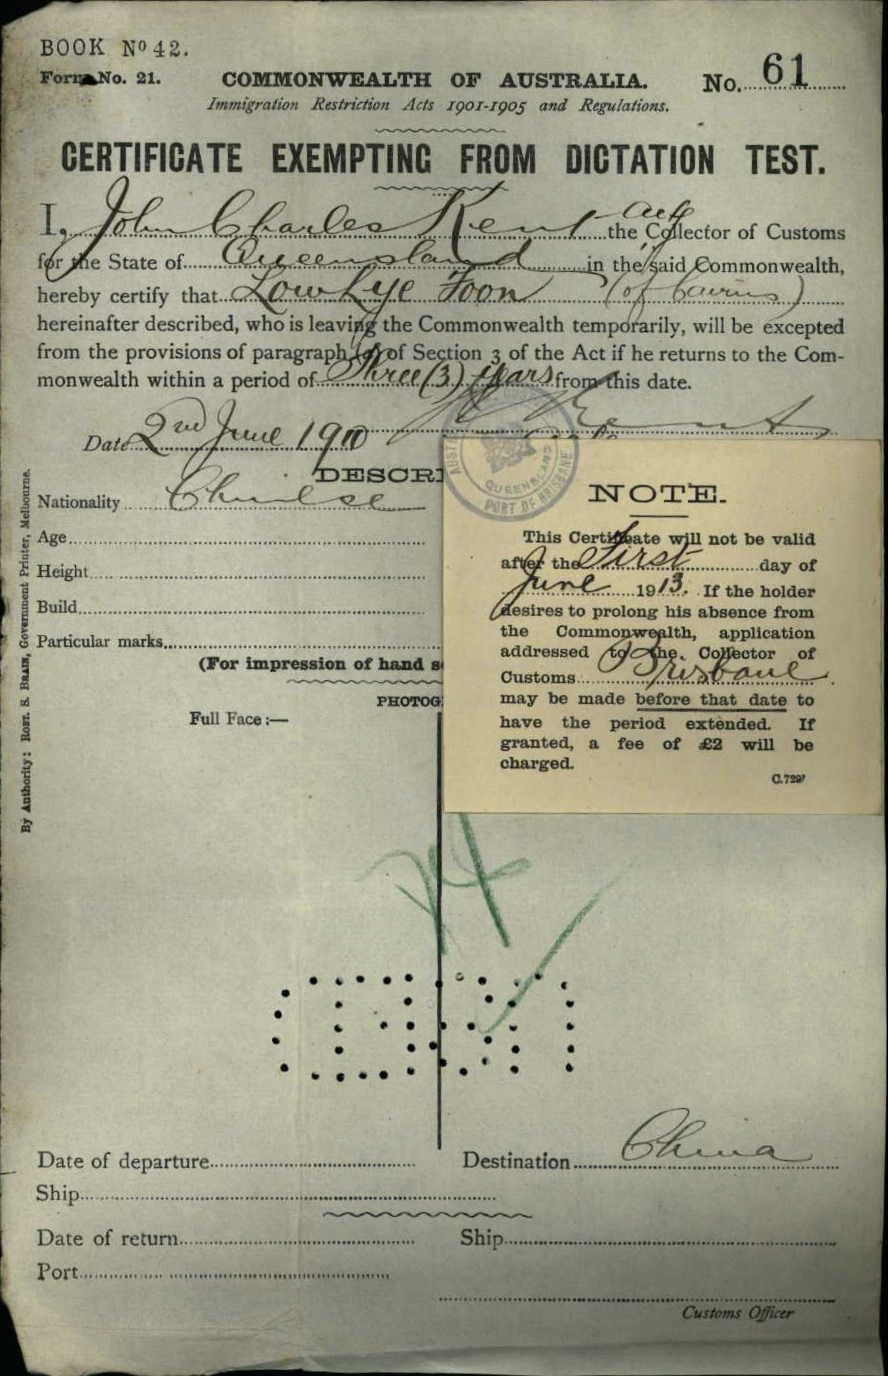 BOOK Nº 42.
Form No. 21.
COMMONWEALTH OF AUSTRALIA.
No. 61
Immigration Restriction Acts 1901-1905 and Regulations.
CERTIFICATE EXEMPTING FROM DICTATION TEST.
I, John Charles Kent actg the Collector of Customs
for the State of Queensland in the said Commonwealth,
hereby certify that Low Lye Foon (of Cairns)
hereinafter described, who is leaving the Commonwealth temporarily, will be excepted
from the provisions of paragraph (a) of Section 3 of the Act if he returns to the Com-
monwealth within a period of Three (3) years from this date.
Date 2nd June 1910
Kent
DESCRI
Nationality Chinese
Age
Height
Build
Particular marks
(For impression of hand s
PHOTOG
Full Face :—
AUSTRA
QUEENSLAND
PORT OF BRISBANE
NOTE.
This Certificate will not be valid
after the First day of
June 1913. If the holder
desires to prolong his absence from
the Commonwealth, application
addressed to the Collector of
Customs Brisbane
may be made before that date to
have the period extended. If
granted, a fee of £2 will be
charged.
C.729
By Authority: ROBT. S. BRAIN, Government Printer, Melbourne.
Date of departure
Destination China
Ship
Date of return
Ship
Port
Customs Officer